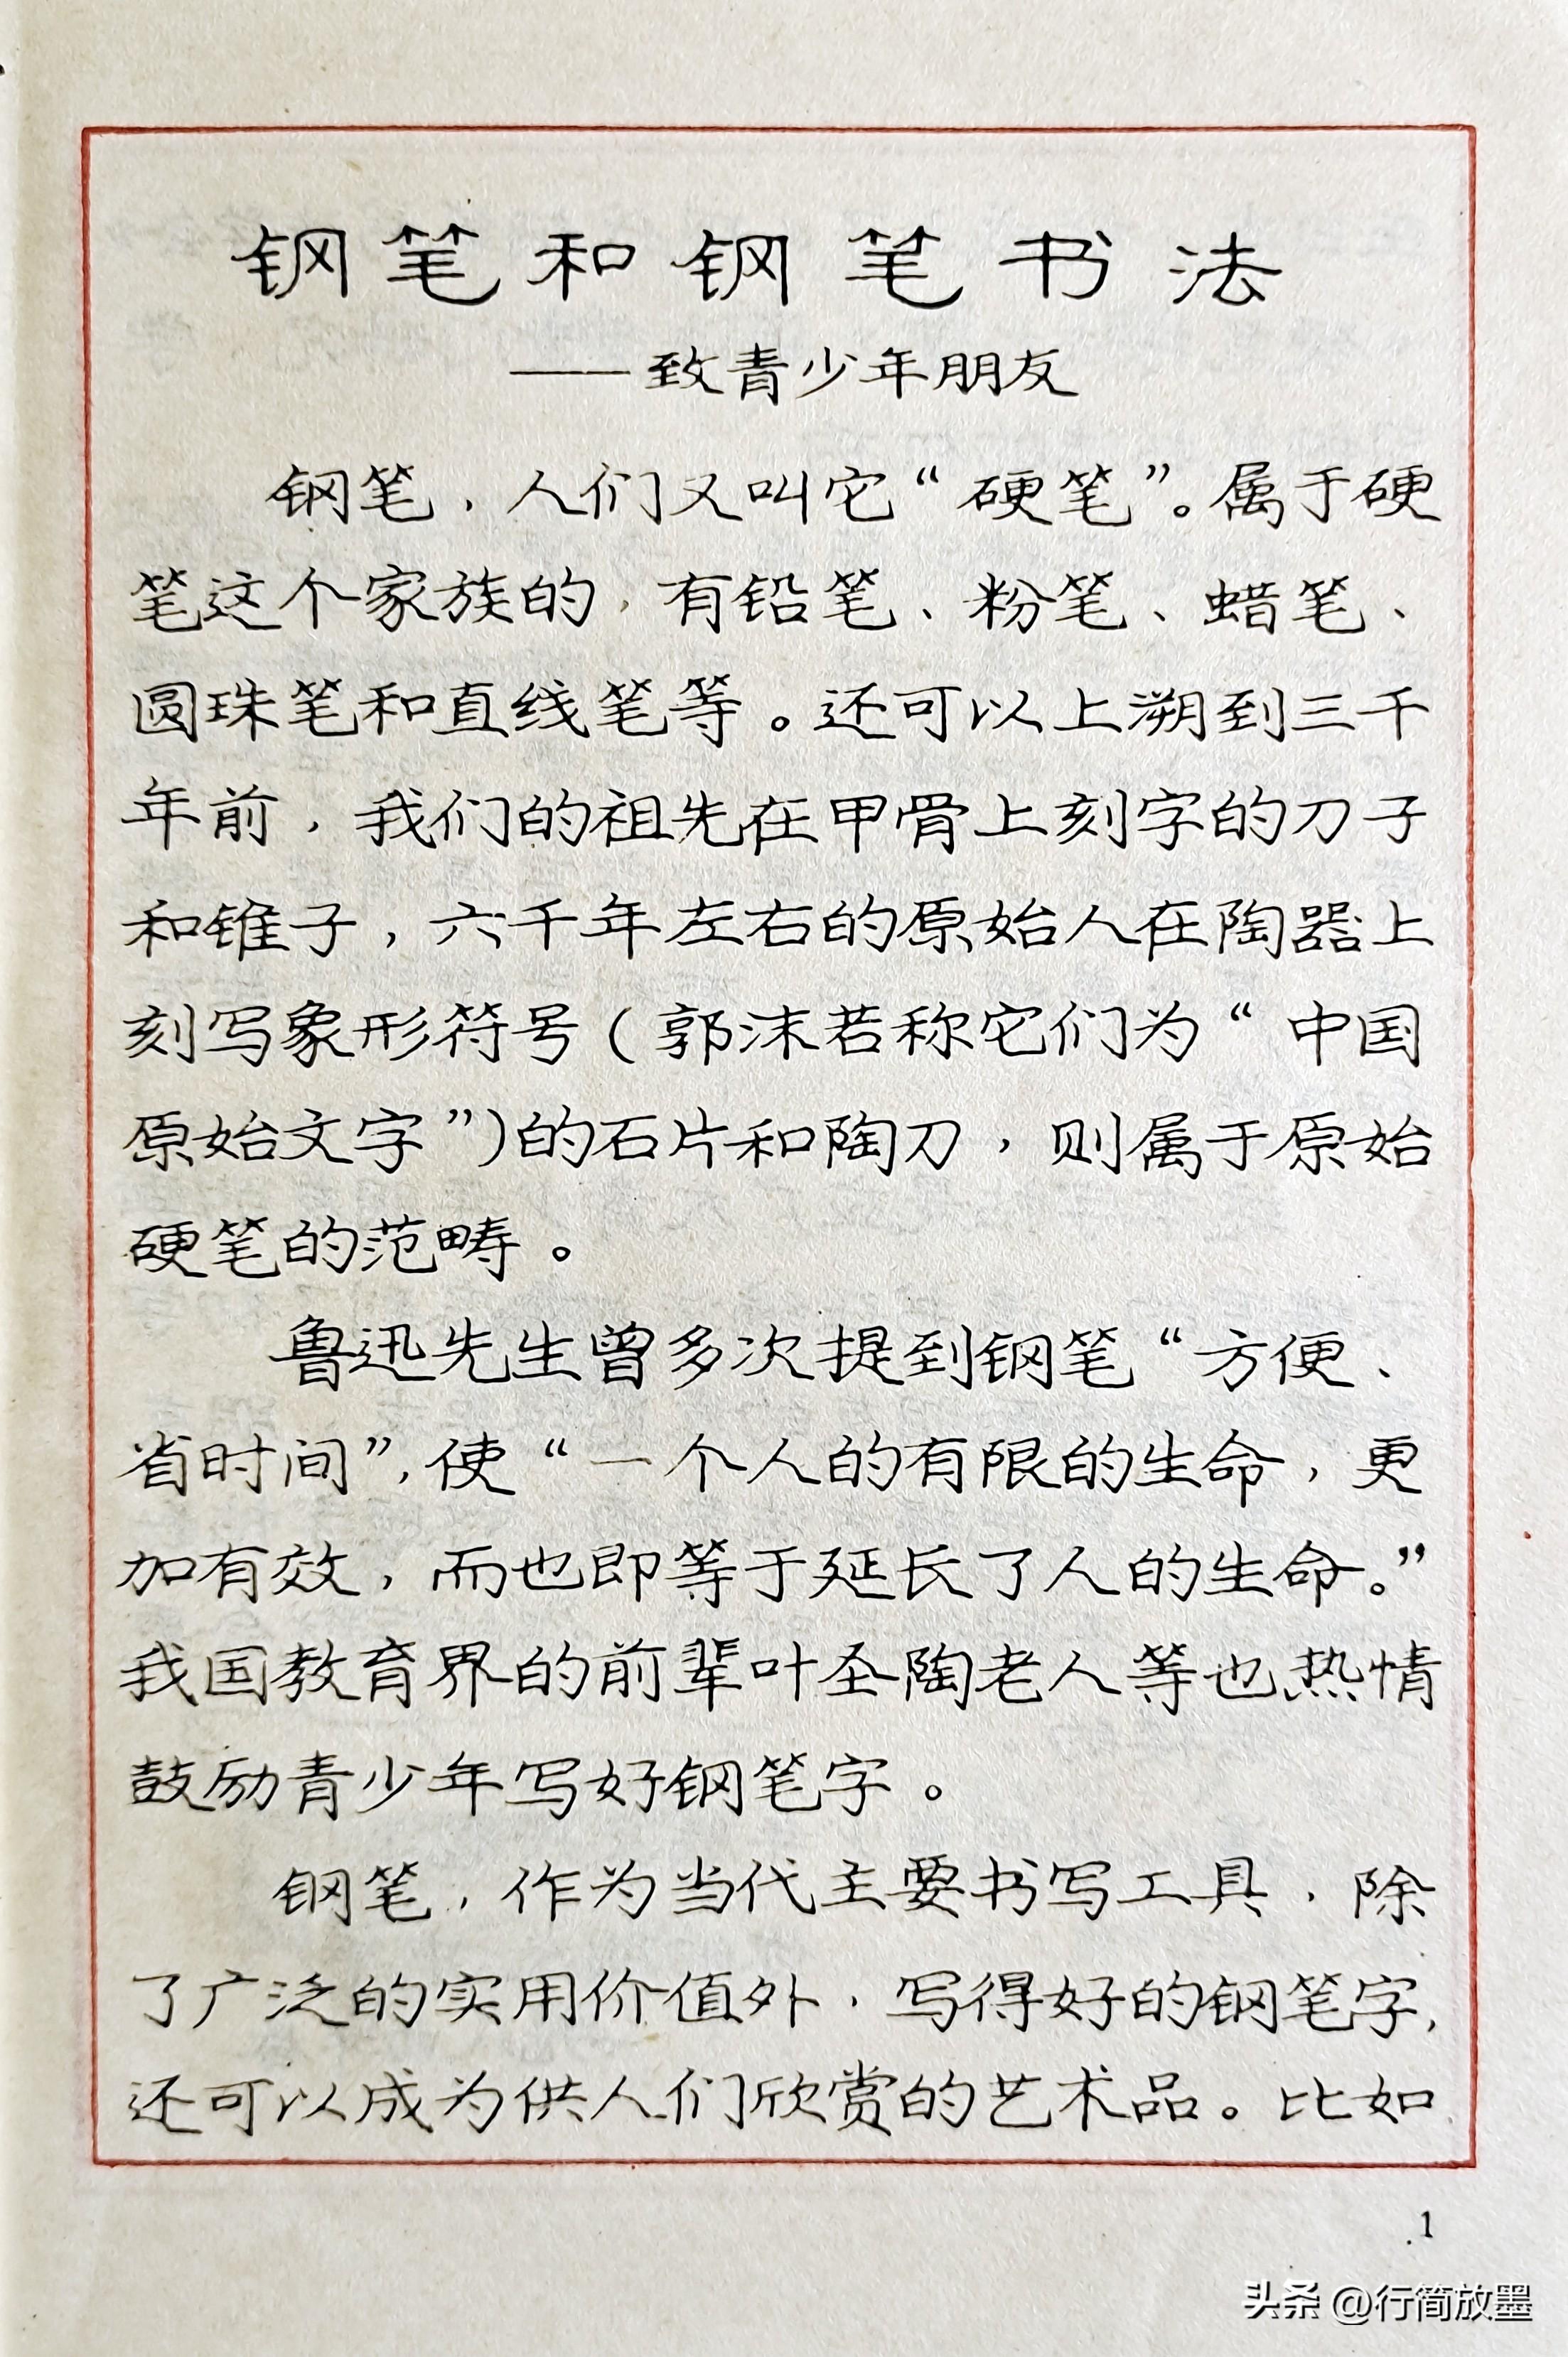 钢笔和钢笔书法
——致青少年朋友
钢笔，人们又叫它“硬笔”。属于硬
笔这个家族的，有铅笔、粉笔、蜡笔、
圆珠笔和直线笔等。还可以上溯到三千
年前，我们的祖先在甲骨上刻字的刀子
和锥子，六千年左右的原始人在陶器上
刻写象形符号(郭沫若称它们为“中国
原始文字”)的石片和陶刀，则属于原始
硬笔的范畴。
鲁迅先生曾多次提到钢笔“方便、
省时间”，使“一个人的有限的生命，更
加有效，而也即等于延长了人的生命。”
我国教育界的前辈叶圣陶老人等也热情
鼓励青少年写好钢笔字。
钢笔，作为当代主要书写工具，除
了广泛的实用价值外，写得好的钢笔字，
还可以成为供人们欣赏的艺术品。比如
1
头条 @行简放墨